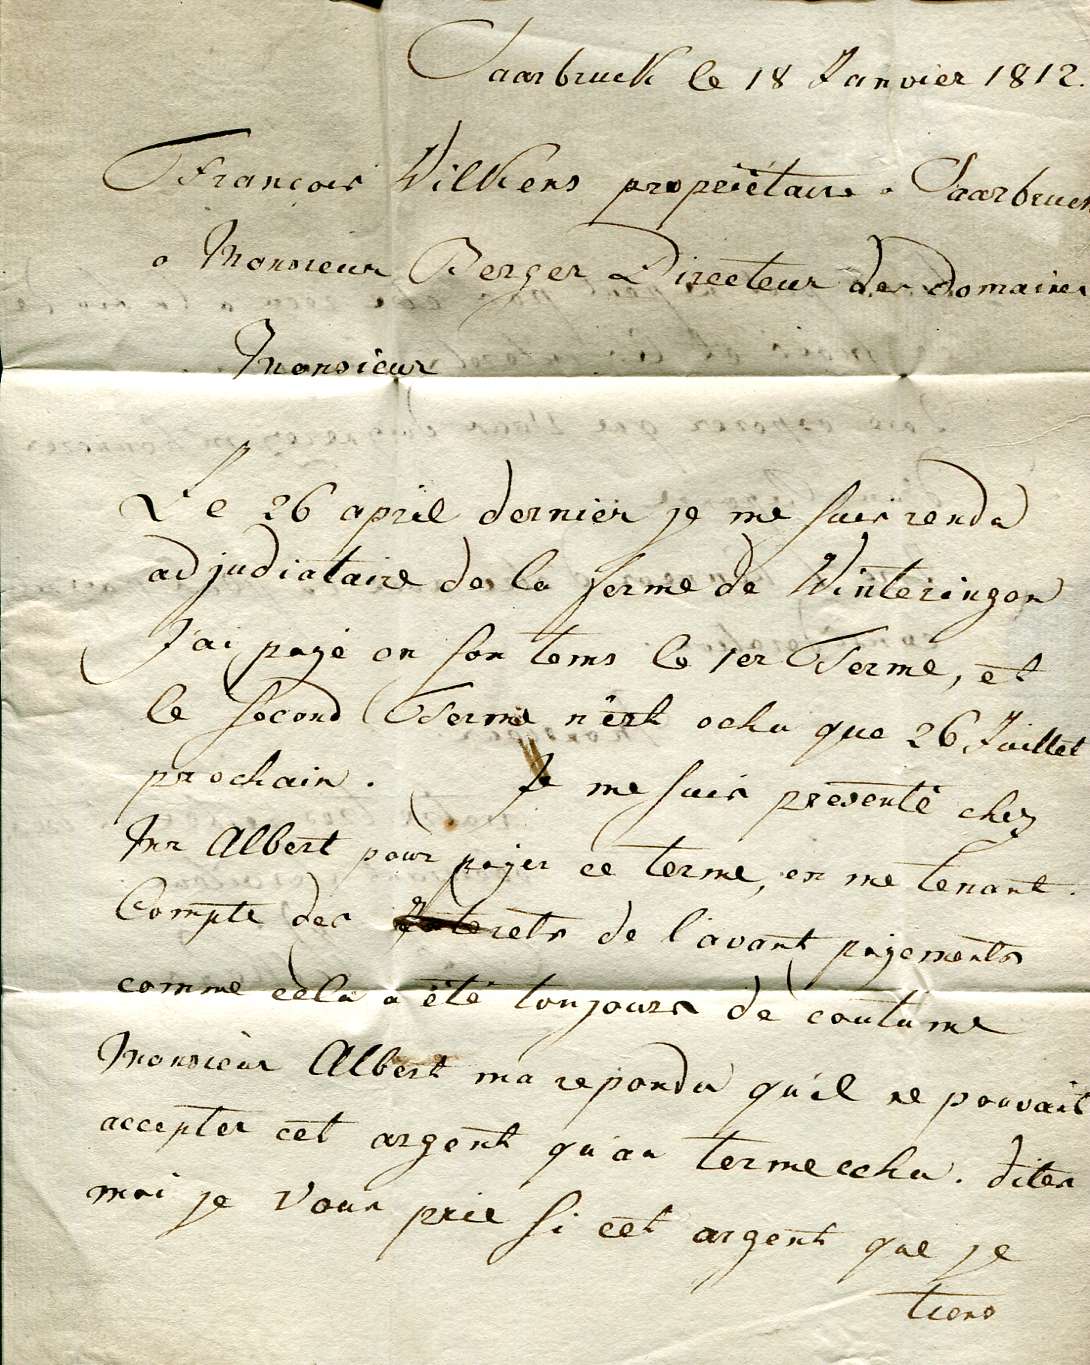 Saarbruck le 18 Janvier 1812.
François Wilkens propriétaire a Saarbruck
a Monsieur Berger Directeur des Domaines
Monsieur
Le 26 april dernier je me suis rendu
adjudiataire de la ferme de Winteringen
J'ai payé en son tems le 1er Terme, et
le second Terme n'est echu que 26 Juillet
prochain. Je me suis presenté chez
Mr Albert pour payer ce terme, en me tenant
Compte des Interets de l'avant payements
comme cela a été toujours de coutume
Monsieur Albert ma repondu qu'il ne pouvait
accepter cet argent qu'au terme echu. dites
moi je vous prie si cet argent que je
tiens